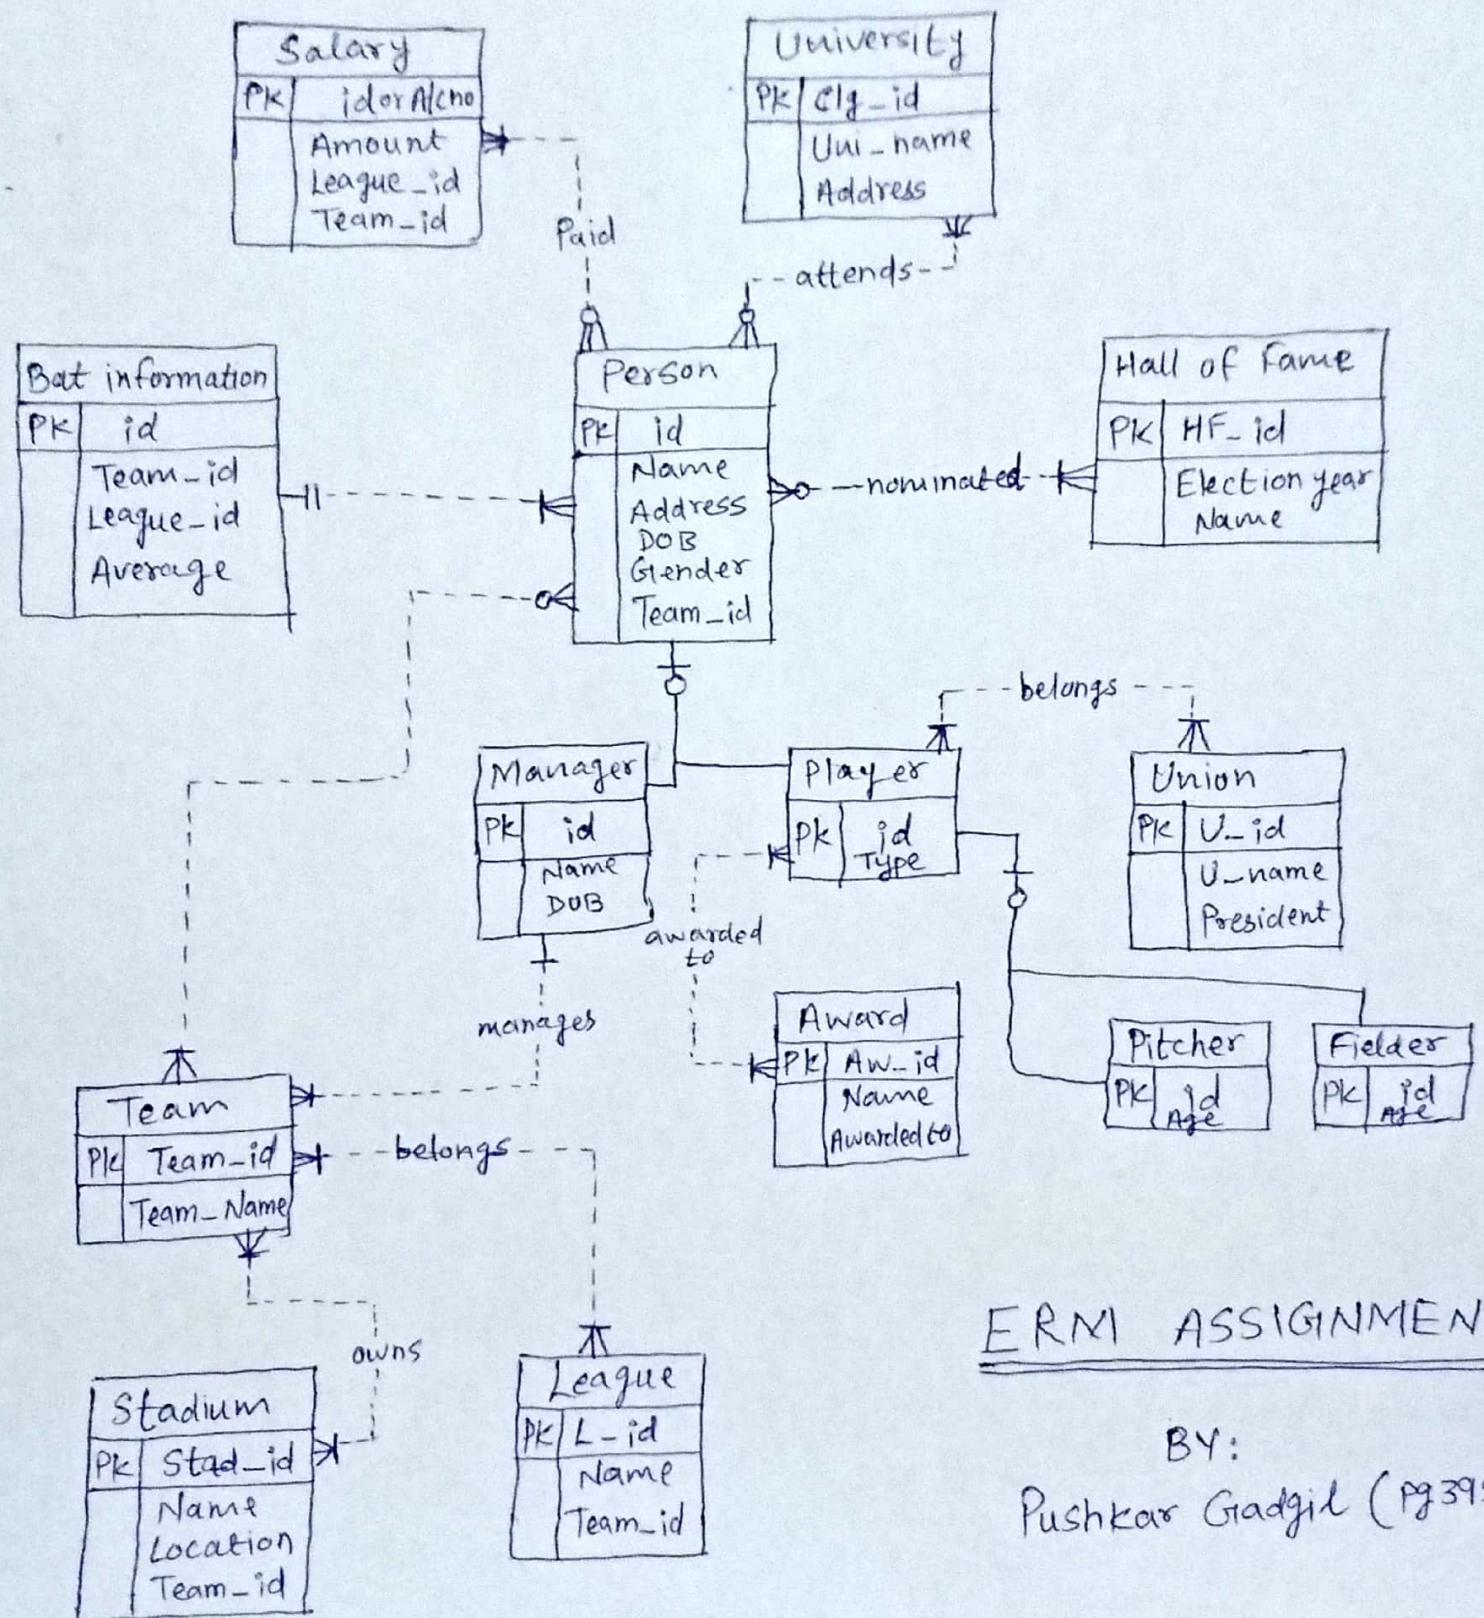 Salary
PK idorA/cno
Amount
League_id
Team_id
University
PK Clg_id
Uni_name
Address
Paid
attends
Bat information
PK id
Team_id
League_id
Average
Person
PK id
Name
Address
DOB
Gender
Team_id
nominated
Hall of Fame
PK HF_id
Election year
Name
belongs
Manager
PK id
Name
DOB
Player
PK id
Type
Union
PK U_id
U_name
President
awarded
to
manages
Award
PK Aw_id
Name
Awardedto
Pitcher
PK id
Age
Fielder
PK id
Age
Team
PK Team_id
Team_Name
belongs
owns
Stadium
PK Stad_id
Name
Location
Team_id
League
PK L_id
Name
Team_id
ERM ASSIGNMEN
BY:
Pushkar Gadgil (pg39